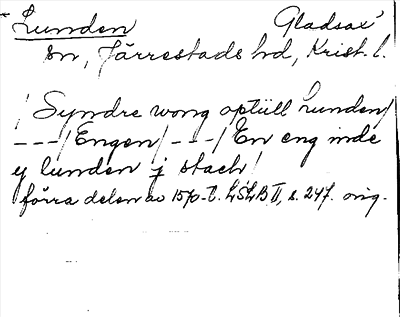 Lunden Gladsax'
sn, Järrestads hd, Krist. l.
/ Syndre wong optiill Lunden/
---/Engen/---/ En eng inde
y lunden j stach /
förra delen av 1570-t. LSLB II, s. 247. orig.